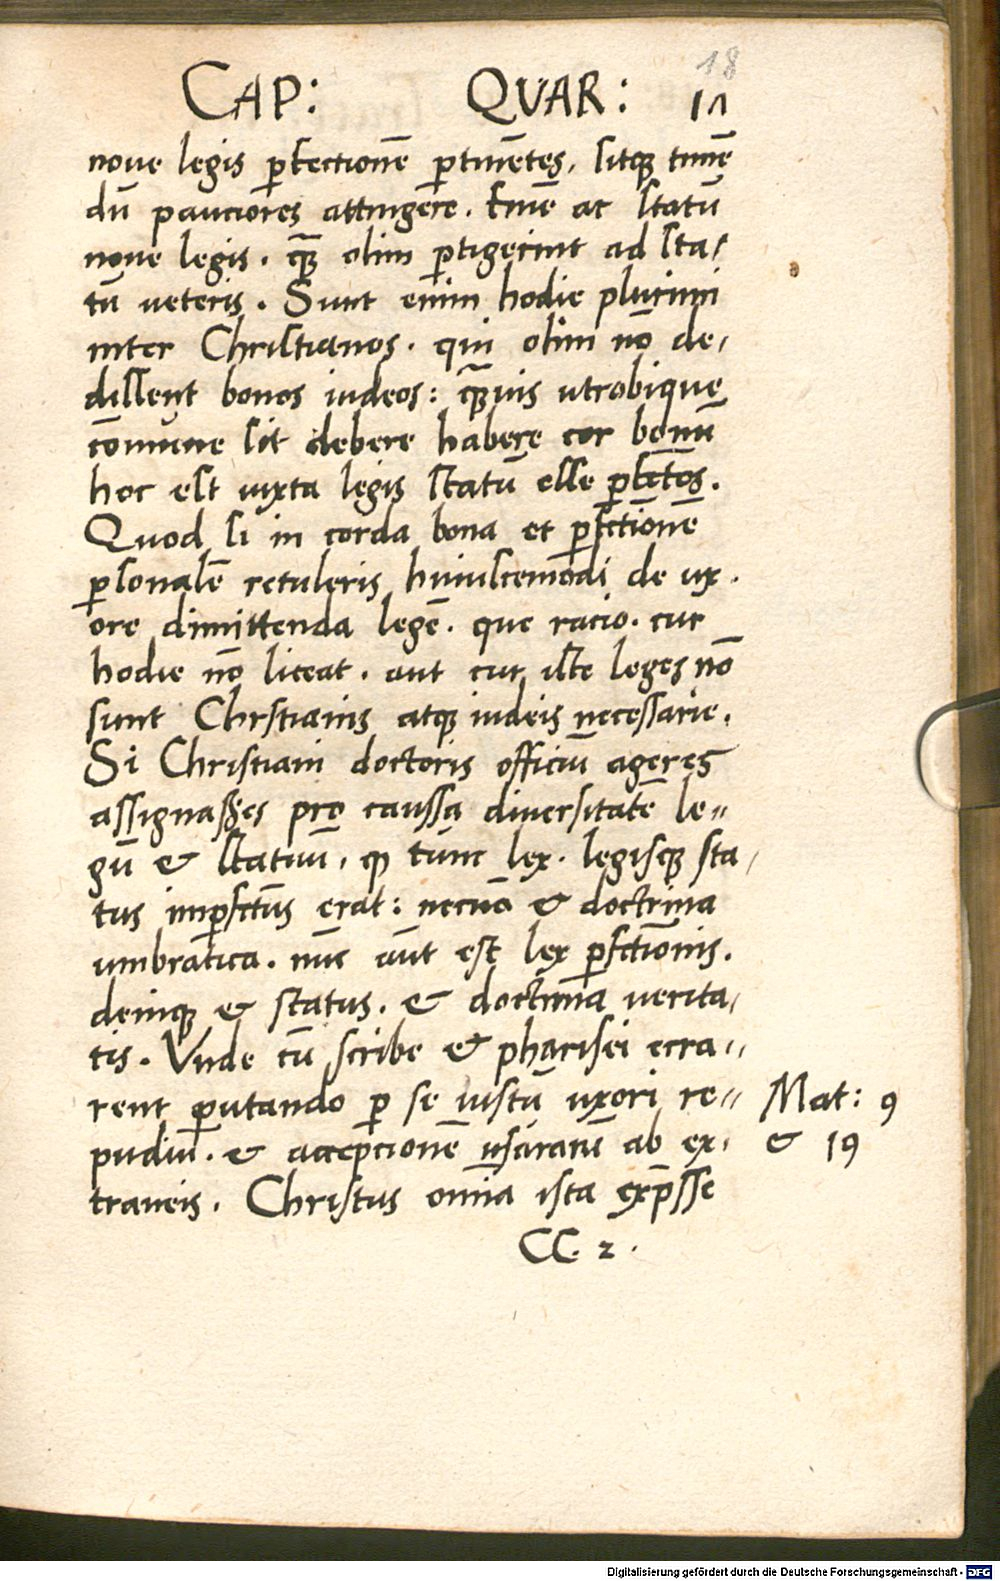 18
CAP: QUAR: 17
noue legis p̱fectionē p̱tinētes, sitq̃ timē
dū pauciores attingere. finē ac statū
noue legis. q̃ olim p̱tigerint ad sta/
tū ueteris. Sunt enim hodie plurimi
inter Christianos. qui olim nō de,
dissent bonos iudeos: q̃uis utrobique
cōmune sit debere habere cor bonū
hoc est iuxta legis statū esse p̱fctos.
Quod si in corda bona et p̱fctionē
p̱sonalē retuleris huiuscemodi de ux.
ore dimittenda legē. que racio. cur
hodie nō liceat. aut cur iste leges nō
sunt Chrstianis atq̃ iudeis necessarie.
Si Christiani doctoris officiū ageres
assignasses pro caussa diuersitatē le"
gū & statuū. q̱ tūnc lex. legisq̃ sta,
tus imp̱fctus erat: necnō & doctrina
umbratica. nūc aūt est lex p̱fctionis.
deniq̃ & status. & doctrina uerita,
tis. Vnde cū scribe & pharisei erra"
rent putando p̱ se iustū uxori re"
pudiū. & accepcionē usurarū ab ex,
traneis. Christus omnia ista exp̄sse
Mat: 9
& 19
CC. 2.
Digitalisierung gefördert durch die Deutsche Forschungsgemeinschaft - DFG